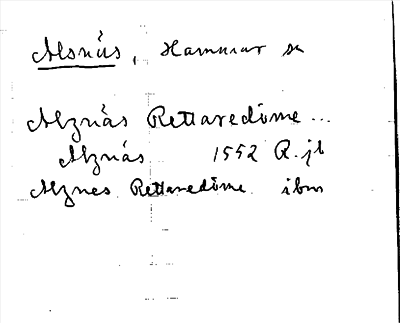 Alsnäs, Hammar sn
Alznäs Rettaredöme...
Alznäs 1552 R.jb
Alznes Rettaredöme ibm